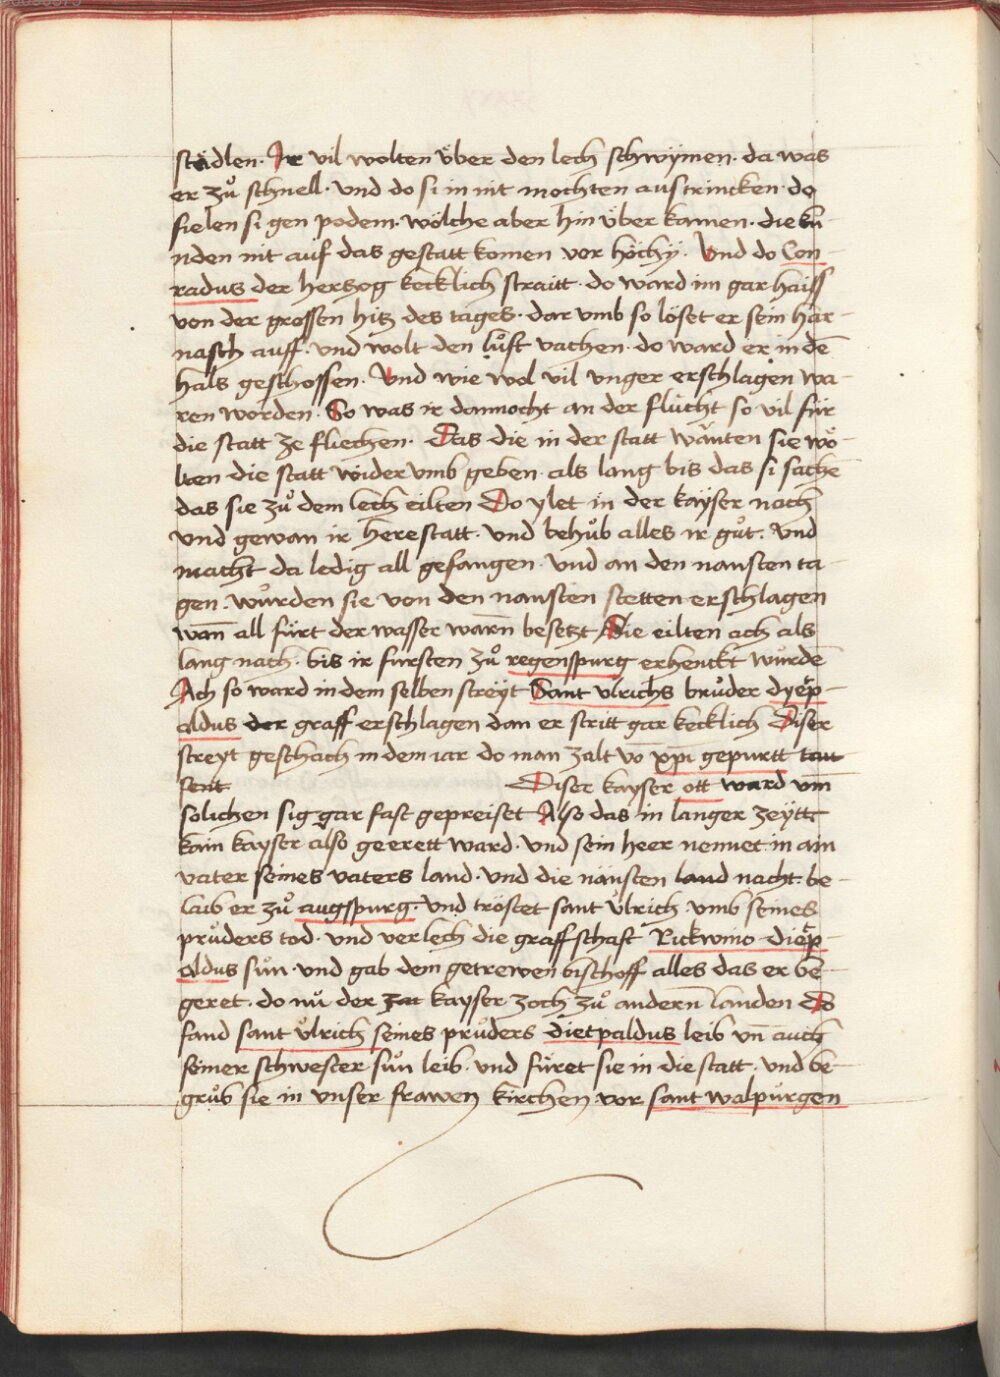 städlen. Ir vil wolten über den lech schwÿmen. da was
er zů schnell. und do si in nit mochten austrincken. do
fielen si gen podem. wölche aber hin über kamen. die kū
nden nit auf das gestatt komen vor höchÿ. Und do Con
radus der herzog kecklich straitt. do ward im gar haiss
von der grossen hitz des tages. dar umb so löset er sein har
nasch auff. und wolt den lůft vachen. do ward er in dē
hals geschossen. Und wie wol vil unger erschlagen wa
ren worden. So was ir dannocht an der flucht so vil für
die statt ze fliechen. Das die in der statt wänten sie wö
lten die statt wider umb geben. als lang bis das si sachē
das sie zů dem lech eilten Do ylet in der kaÿser nach
und gewan ir herestatt. und behůb alles ir gůt. Und
macht da ledig all gefangen. und an den nansten ta
gen. wurden sie von den nansten stetten erschlagen
wan̄ all fürt der wasser warn̄ besetzt Sie eilten ach als
lang nach. bis ir fursten zů regenspurg erhenckt wurdē
Ach so ward in dem selben streÿt Sant ulrichs brůder dyep
aldus der graff erschlagen dan er stritt gar kecklich Diser
streyt geschach in dem iar do man zalt vō xp̄i gepurtt tau
sent Diser kayser ott ward um̄
solichen sig gar fast gepreiset Also das in langer zeÿtt
kain kayser also geerett ward. und sein heer nennet in ain
vater seines vaters land. und die nänsten land nacht. be
laib er zů augspurg. Und tröstet sant ůlrich. umb seines
průders tod. und verlech die graffschaft Rickwino diep
aldus sůn. und gab dem getrewen bischoff alles das er be
geret. do nů der kayser zoch zů andern̄ landen Do
fand sant ůlrich seines průders dietpaldus leib un̄ auch
seiner schwester sůn leib. und fůret sie in die statt. und be
grůb sie in unser frawen kirchen vor sant walpurgen